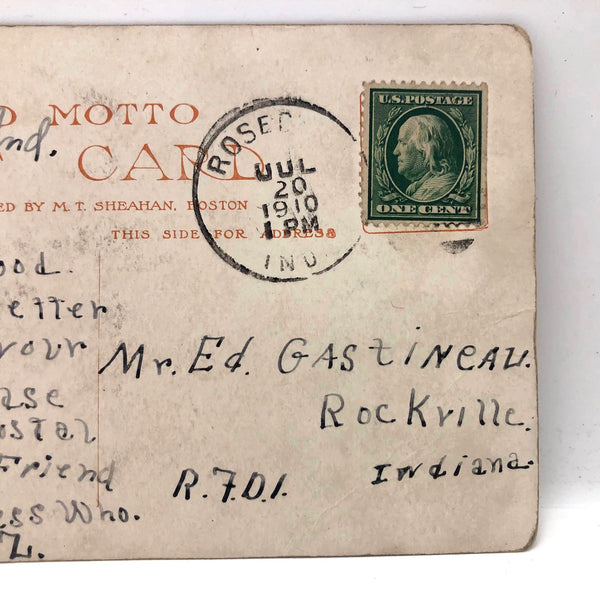 D MOTTO
nd.
CARD
ED BY M. T. SHEAHAN, BOSTON
THIS SIDE FOR ADDRESS
ROSED
JUL
20
1910
1 PM
IND
U.S. POSTAGE
ONE CENT
ood.
etter
your
ase
ostal
Friend
ess Who.
Z.
Mr. Ed. GastiNeau.
Rockville.
Indiana.
R.F.D.1.